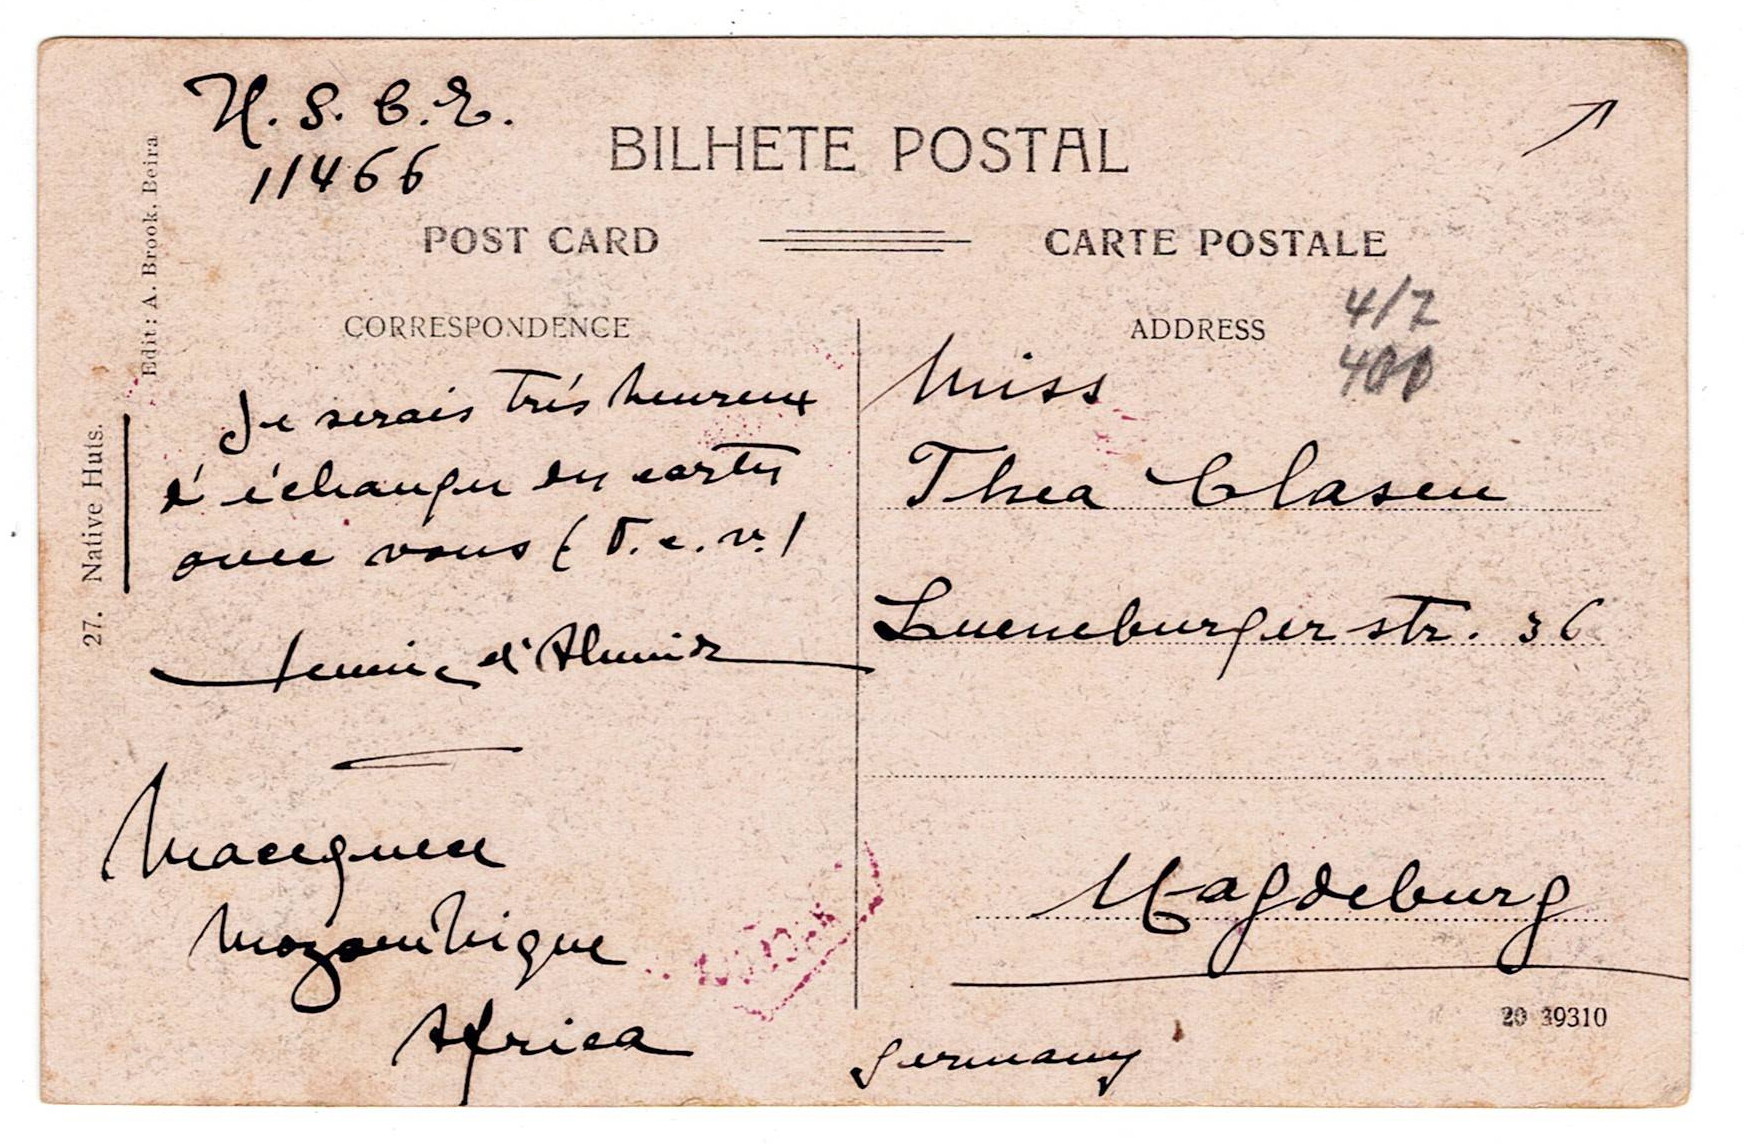 H. S. C. E.
11466
BILHETE POSTAL
POST CARD
CARTE POSTALE
CORRESPONDENCE
ADDRESS
4/7
400
Je serais très heureux
d'échanger des cartes
avec vous (T. c. v.)
d'Almeida
Macequece
Mozambique
Africa
Miss
Thea Clasen
Lueneburgerstr. 36
Magdeburg
Germany
20 39310
27. Native Huts.
Edit: A. Brook, Beira